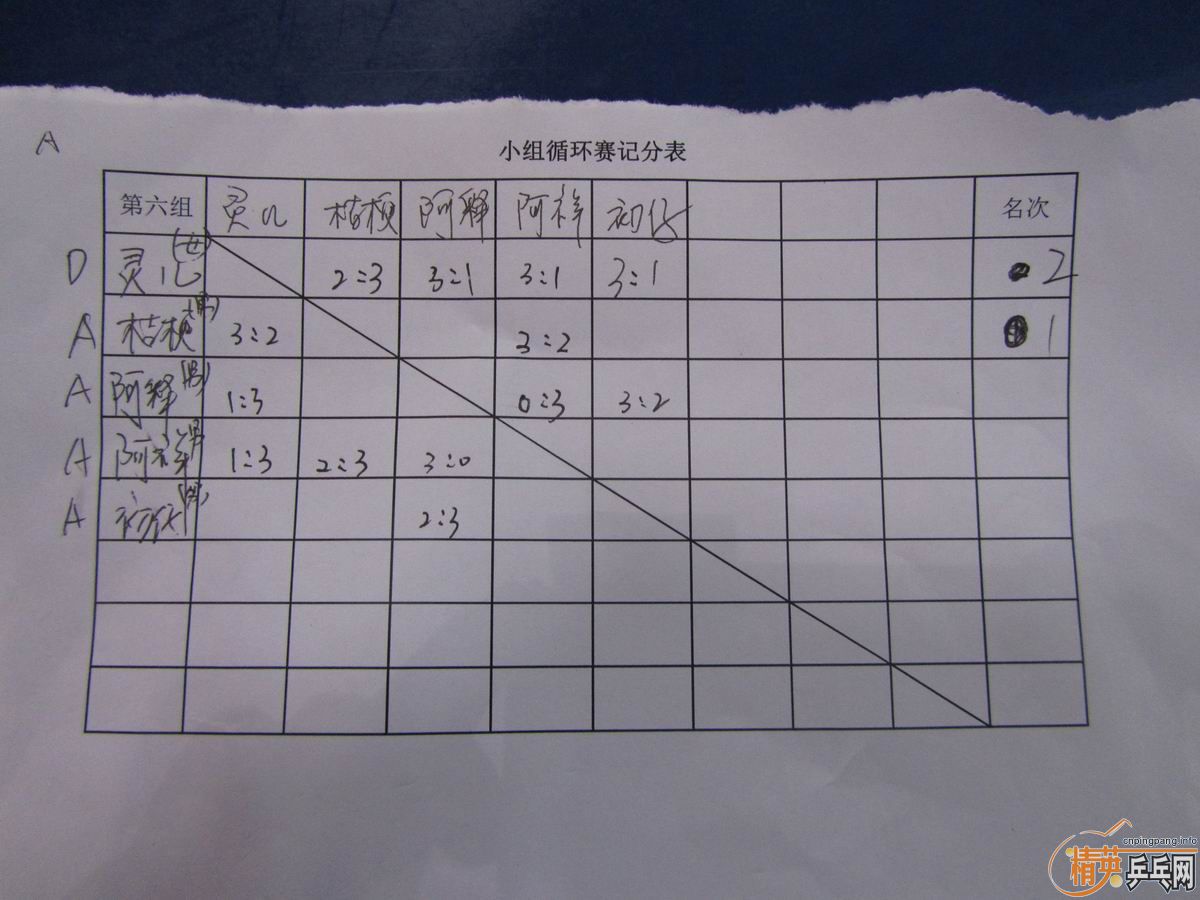 A
小组循环赛记分表
第六组 灵儿 桔梗 阿释 阿祥 初 名次
D 灵儿(女) 2:3 3:1 3:1 3:1 2
A 桔梗(男) 3:2 3:2 1
A 阿释(男) 1:3 0:3 3:2
A 阿祥男 1:3 2:3 3:0
A 初 2:3
cnpingpang.info
精英乒乓网